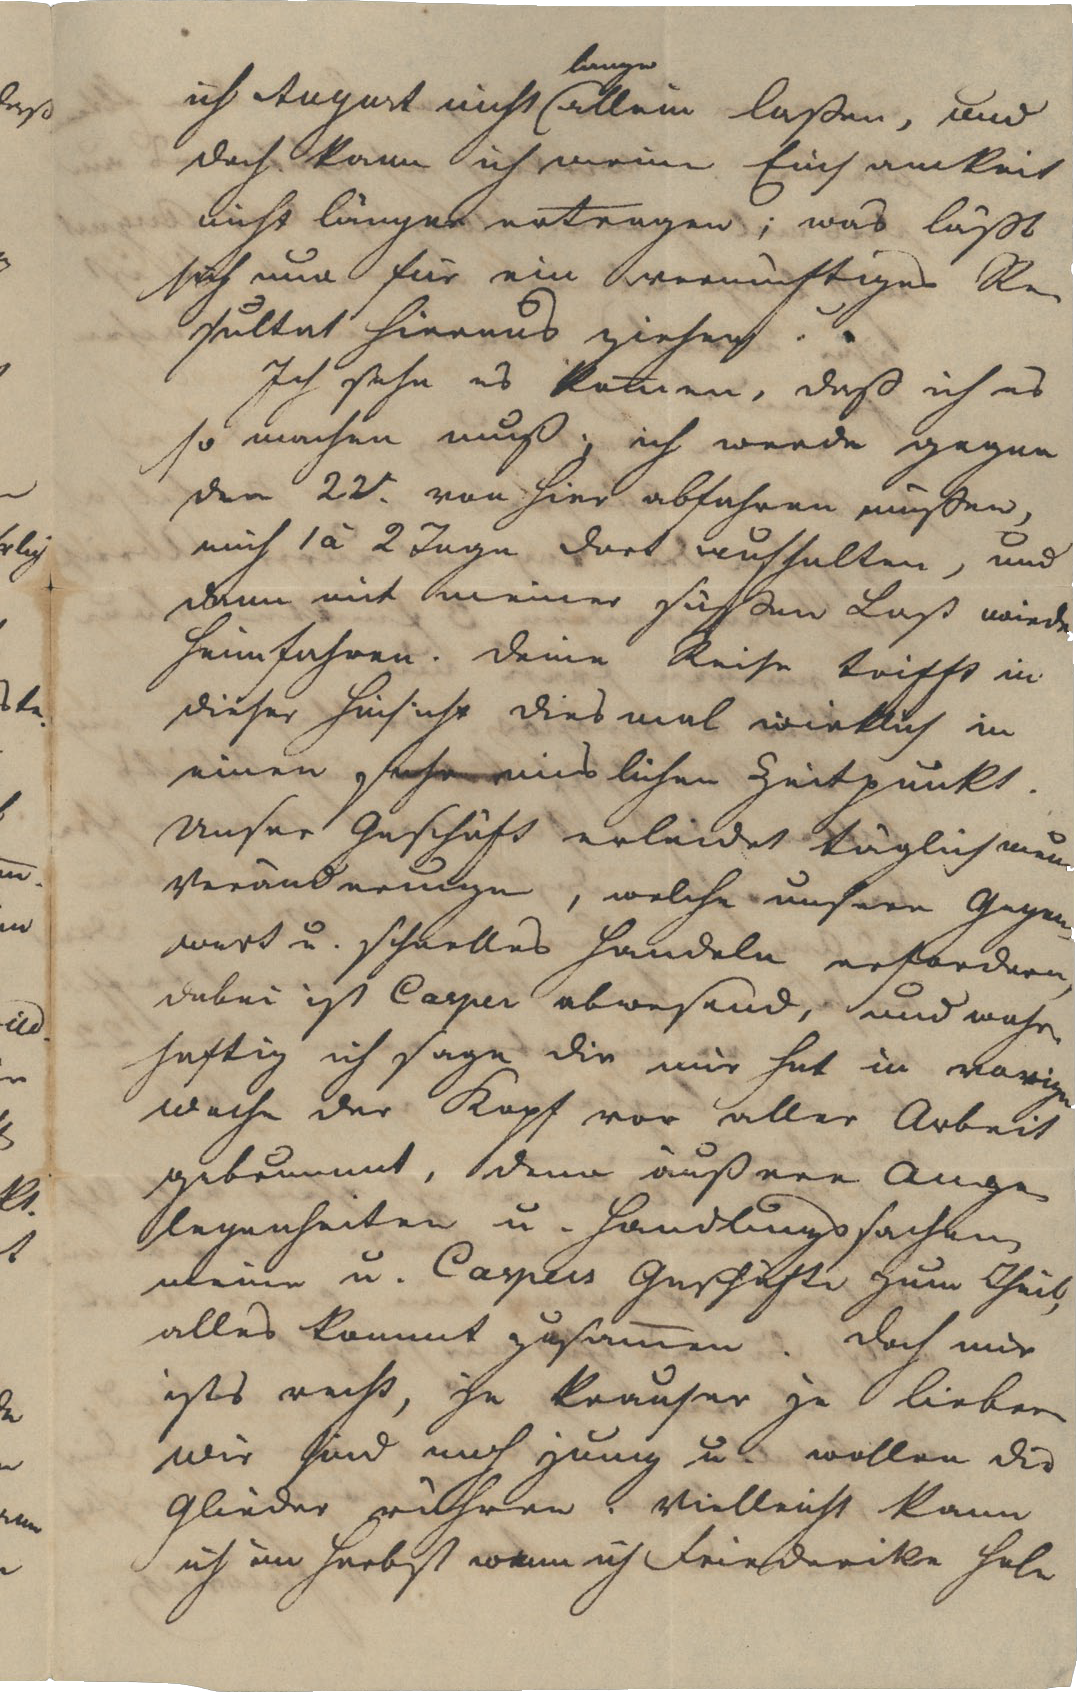 lange
ich August nicht (allein laßen, und
doch kann ich meine Einsamkeit
nicht länger ertragen; was läßt
sich nun für ein vernünftiges Re-
sultat hieraus ziehen.
Ich sehe es kom̅en, daß ich es
so machen muß; ich werde gegen
den 22t. von hier abfahren müßen,
mich 1 à 2 Tage dort aufhalten, und
dann mit meiner süßen Last wieder
heimfahren. Deine Reise trifft in
dieser Hinsicht diesmal wirklich in
einen sehr mislichen Zeitpunkt.
Unser Geschäft erleidet täglich neue
Veränderungen, welche unsere Gegen-
wart u. schnelles Handeln erfordern,
dabei ist Casper abwesend, und wahr-
haftig ich sage dir mir hat in voriger
Woche der Kopf vor aller Arbeit
gebrummt, denn äußere Ange-
legenheiten u. Handlungssachen,
meine u. Caspers Geschäfte zum Theil,
alles kommt zusam̅en. Doch mir
ists recht, je krauser je lieber
wir sind noch jung u. wollen die
Glieder rühren. Vielleicht kann
ich im Herbst wenn ich Friederike hole